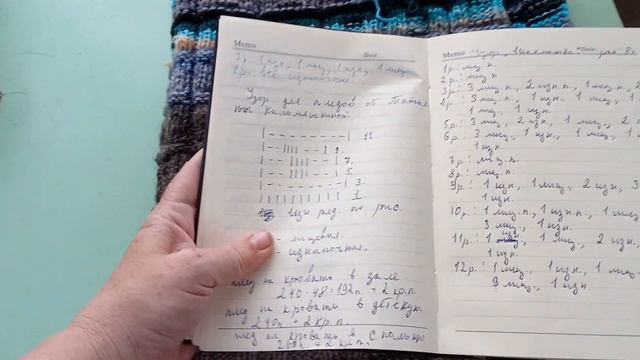 Memo Date
1р. 1 изн, 1 лиц, 1 изн, 1 лиц
2р. все изнаночные.
Узор для пледов от Татья
ны Кальмашкиной.
|--------| 11.
|--||||---| 9.
|---||||---| 7.
|---||||---| 5.
|--------| 3.
||||||||||| 1.
изн ряд. по рис.
| - лицевая.
- - изнаночная.
плед на кровать в зале
240-48=192п + 2 кр.п.
плед на кровать в детскую.
240п + 2 кр п.
плед на кровать в спальню
+ 2 кр.п.
Memo Узор "Шахматка" Date
1р: лиц.п.
2р: лиц.п
3р: 3 лиц.п., 2 изн.п., 1 лиц.п.
4р: 3 лиц.п., 1 изн.
1 лиц. 1 изн.
5р: 3 лиц, 2 изн, 1 лиц,
6р: 3 лиц., 1 изн., 1 лиц.,
1 изн.
7р: лиц.п.
8р: лиц.п.
9р: 1 изн., 1 лиц, 2 изн, 3
1 изн.
10р.: 1 лиц.п, 1 изн.п., 1 лиц
3 лиц., 1 изн.
11р: 1 изн, 1 лиц., 2 изн.,
1 изн.
12р: 1 лиц., 1 изн., 1 лиц.
3 лиц., 1 изн.